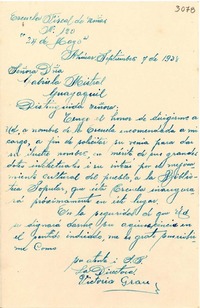 3078
Escuela Fiscal de niñas
No. 120
"24 de Mayo"
Septiembre 7 de 1938
Señora Dña
Gabriela Mistral
Guayaquil
Distinguida señora:
Tengo el honor de dirigirme a
Ud, a nombre de la Escuela encomendada a mi
cargo, a fin de solicitar su venia para dar
su ilustre nombre, en mérito de sus grandes
dotes intelectuales i su interés por el mejora-
miento cultural del pueblo a la Biblio-
teca Popular, que esta Escuela inaugura
rá próximamente en este lugar.
En la seguridad de que Ud
se dignará
sentido indicado, me es grato suscribir
me como
su atta i S.S.
La Directora
Victoria Grau